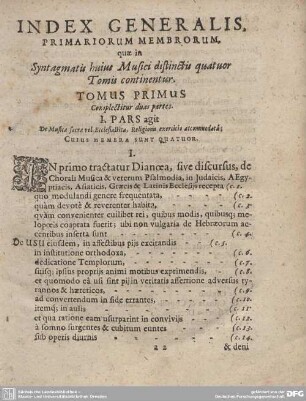 INDEX GENERALIS,
PRIMARIORUM MEMBRORUM,
quæ in
Syntagmatis huius Musici distinctis quatuor
Tomis continentur.
TOMUS PRIMUS
Complectitur duas partes.
I. PARS agit
De Musica sacra vel Ecclesiastica, Religionis exercitio accommodata;
CUIUS MEMBRA SUNT QUATUOR.
I.
IN primo tractatur Dianœa, sive discursus, de
Chorali Musica & veterum Psalmodia, in Judaicis, AEgy-
ptiacis, Asiaticis, Græcis & Latinis Ecclesijs recepta (c. 1.
quo modulandi genere frequentata, - - - (c. 2.
quàm devotè & reverenter habita, - - - (c. 3.
quàm convenienter cuilibet rei, quibus modis, quibusq; me-
loporeis coaptata fuerit; ubi non vulgaria de Hebræorum ac-
centibus inserta sunt - - - (c. 4.
De USU ejusdem, in affectibus pijs excirandis - (c. 5.
in institutione orthodoxa, - - - (c. 6.
dedicatione Templorum, - - - (c. 7.
suisq; ipsius proprijs animi motibus exprimendis, - (c. 8.
et quomodo eâ usi sint pij in veritatis assertione adversus ty-
rannos & hæreticos, - - - (c. 9.
ad convertendum in fide errantes, - - - (c. 10.
itemq; in aulis - - - (c. 11.
et qua ratione eam usurparint in convivijs - (c. 12.
à somno surgentes & cubitum euntes - - (c. 13.
sub operis diurnis - - - (c. 14.
a 2 & deni